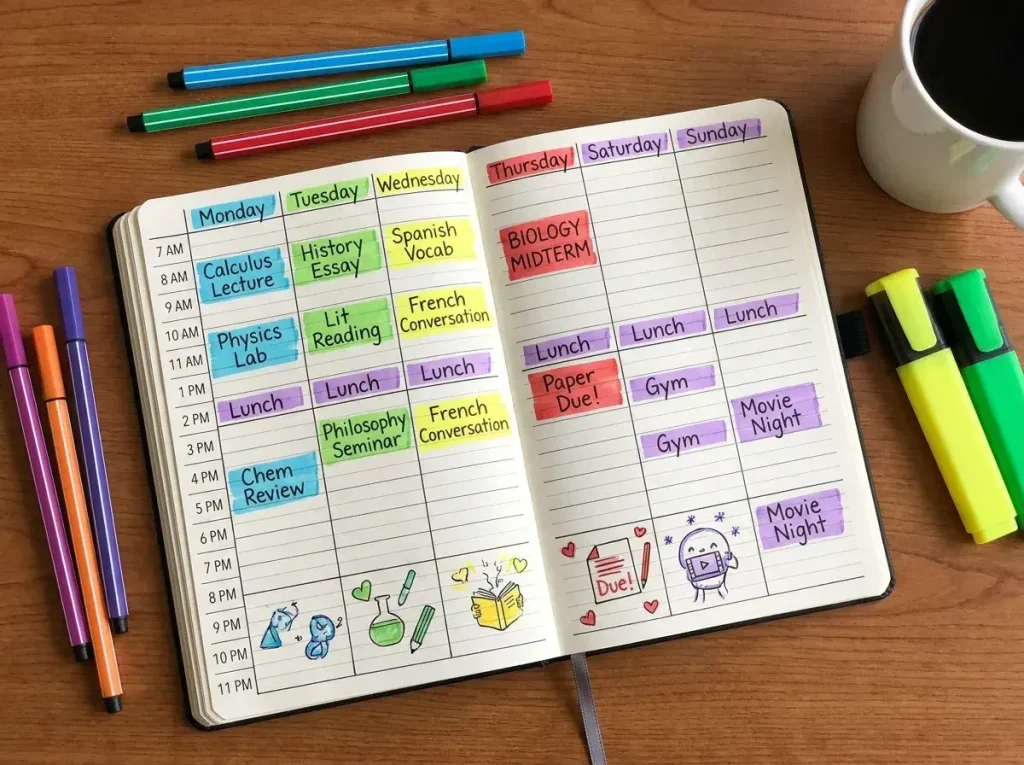 Monday Tuesday Wednesday Thursday Saturday Sunday
7 AM
8 AM
9 AM
10 AM
11 AM
1 PM
2 PM
3 PM
4 PM
5 PM
6 PM
7 PM
8 PM
9 PM
10 PM
11 PM
Calculus
Lecture
Physics
Lab
Lunch
Chem
Review
History
Essay
Lit
Reading
Lunch
Philosophy
Seminar
Spanish
Vocab
French
Conversation
Lunch
French
Conversation
BIOLOGY
MIDTERM
Lunch
Paper
Due!
Due!
Lunch
Gym
Gym
Lunch
Movie
Night
Movie
Night